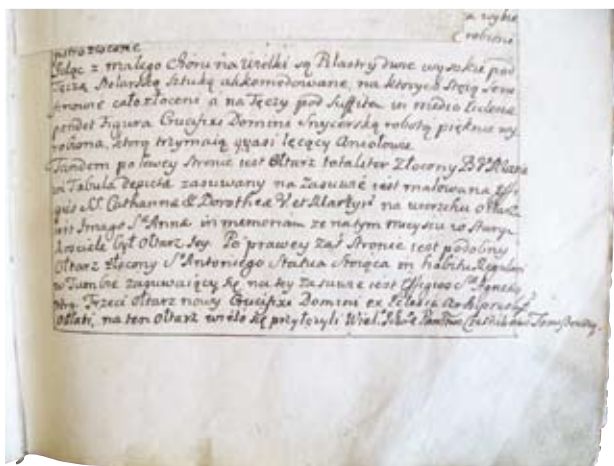 a wybie
robione
pstrozłocone
Idąc z małego Chóru na Wielki są Pilastry dwie wysokie pod
Tęczą Stolarską Sztuką akkomodowane, na ktorych Stoją
całozłoceni a na Tęczy pod Suffitą in medio Ecclesiæ
pendet Figura Crucifixi Domini Snycerską robotą pięknie wy
robiona, ktorą trzymaią quasi lecący Aniołowie
Tandem po lewey Stronie iest Ołtarz totaliter Złocony B V Mariæ
in Tabula depicta zasuwany na Zasuwie iest malowana Effi
gies SS. Catharinæ & Dorotheæ V. et Martyrũ na wierzchu Ołtarza
iest Imago S. Annæ in memoriam ze na tym mieyscu w Starym
kościele był Ołtarz Jey. Po prawey zaś Stronie iest podobny
Ołtarz złocony S. Antoniego Statua Stoiąca in habitu Regulari
w Tumbie zasuwaiący się na tey Zasuwie iest Effigies S. Ignacego
Trzeci Ołtarz nowy Crucifixi Domini ex
Oblati, na ten Ołtarz wiele się przyłozyli